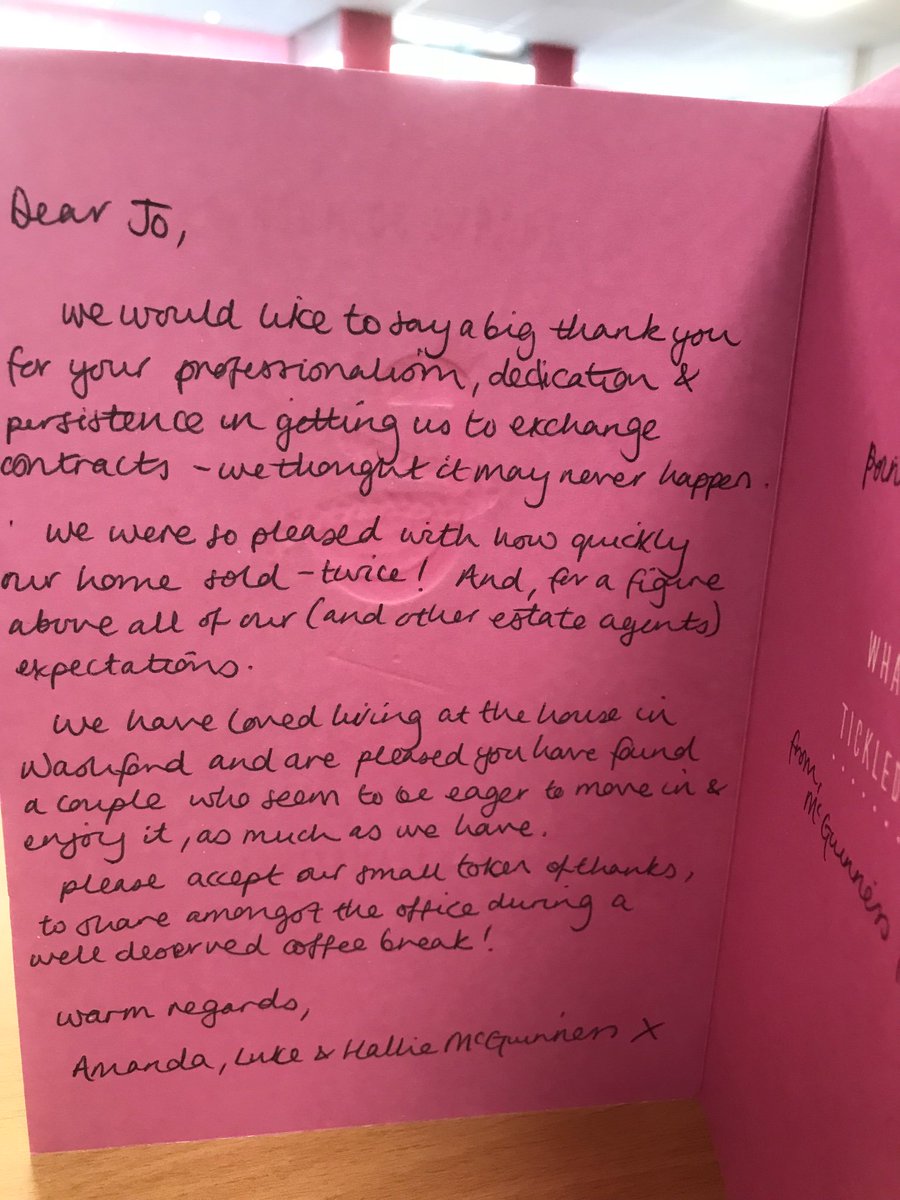 Dear Jo,
we would like to say a big thank you
for your professionalism, dedication &
persistence in getting us to exchange
contracts - we thought it may never happen.
we were so pleased with how quickly
our home sold - twice! And, for a figure
above all of our (and other estate agents)
expectations.
we have loved living at the house in
Washford and are pleased you have found
a couple who seem to be eager to move in &
enjoy it, as much as we have.
please accept our small token of thanks,
to share amongst the office during a
well deserved coffee break!
warm regards,
Amanda, Luke & Hallie McGuinness X
WHA
TICKLED
from,
McGuinness